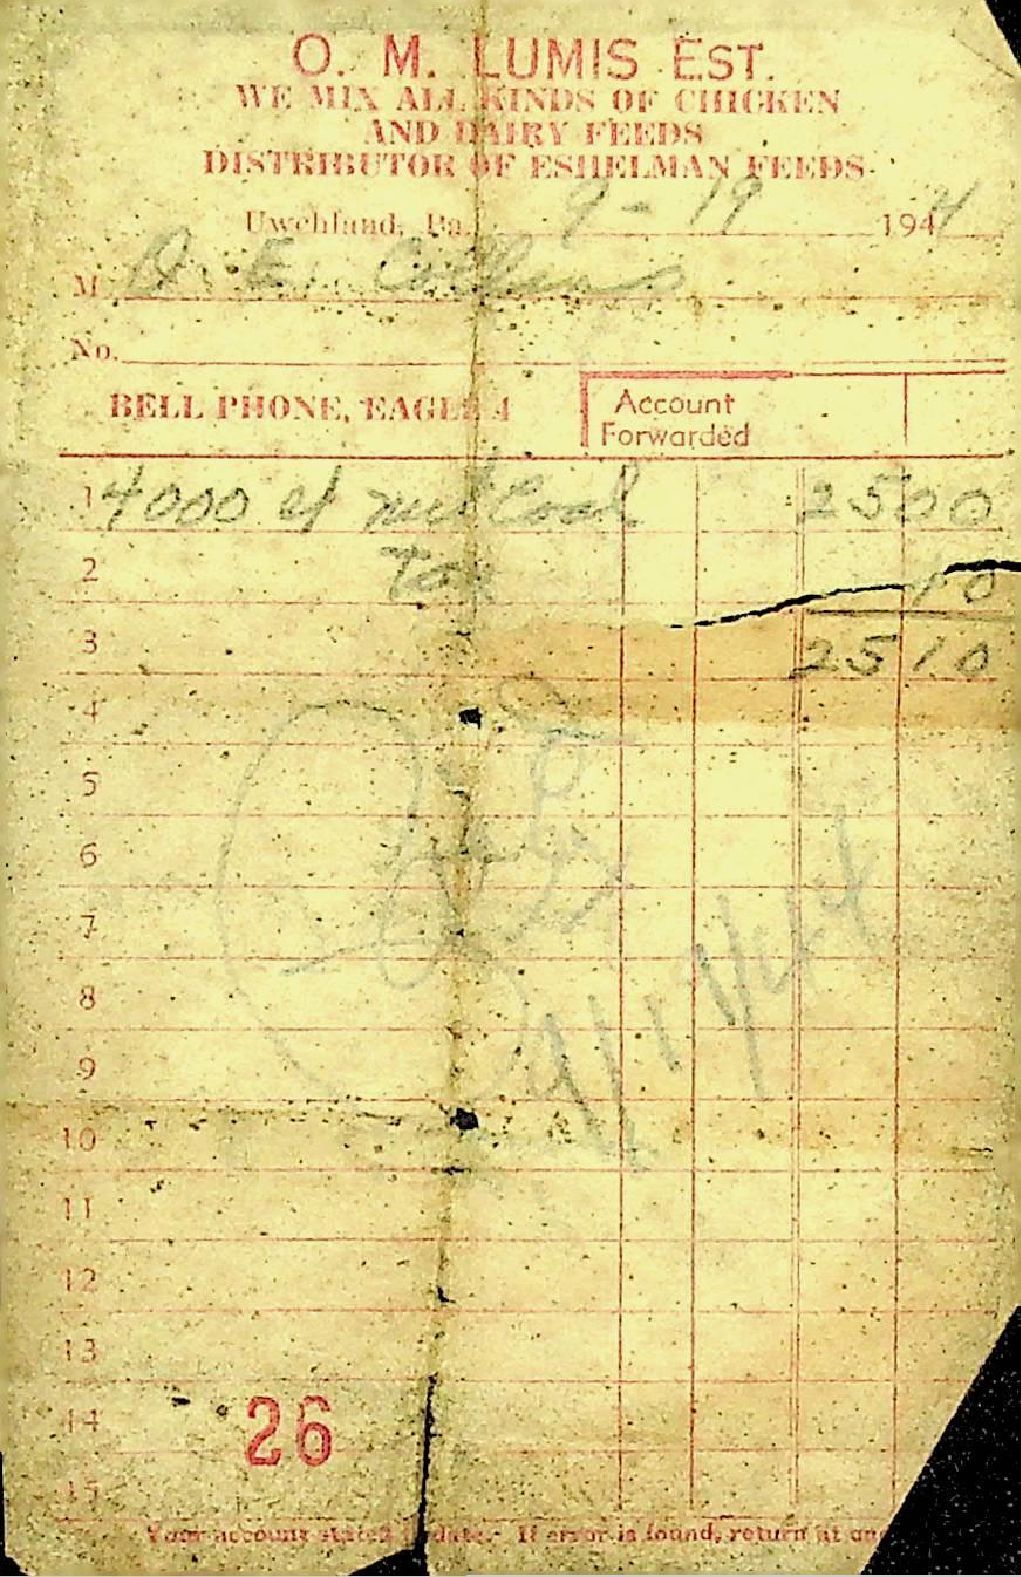 O. M. LUMIS EST.
WE MIX ALL KINDS OF CHICKEN
AND DAIRY FEEDS
DISTRIBUTOR OF ESHELMAN FEEDS
Uwchland, Pa. 9-19 1944
M D. E. Collins
No.
BELL PHONE, EAGLE 4
Account
Forwarded
1 4000 of nut Coal 25 00
2 Tax 10
3 25 10
4
5
6
7
8
9
10
11
12
13
14
15
9/19/44
26
Your account stated to date. If error is found, return at